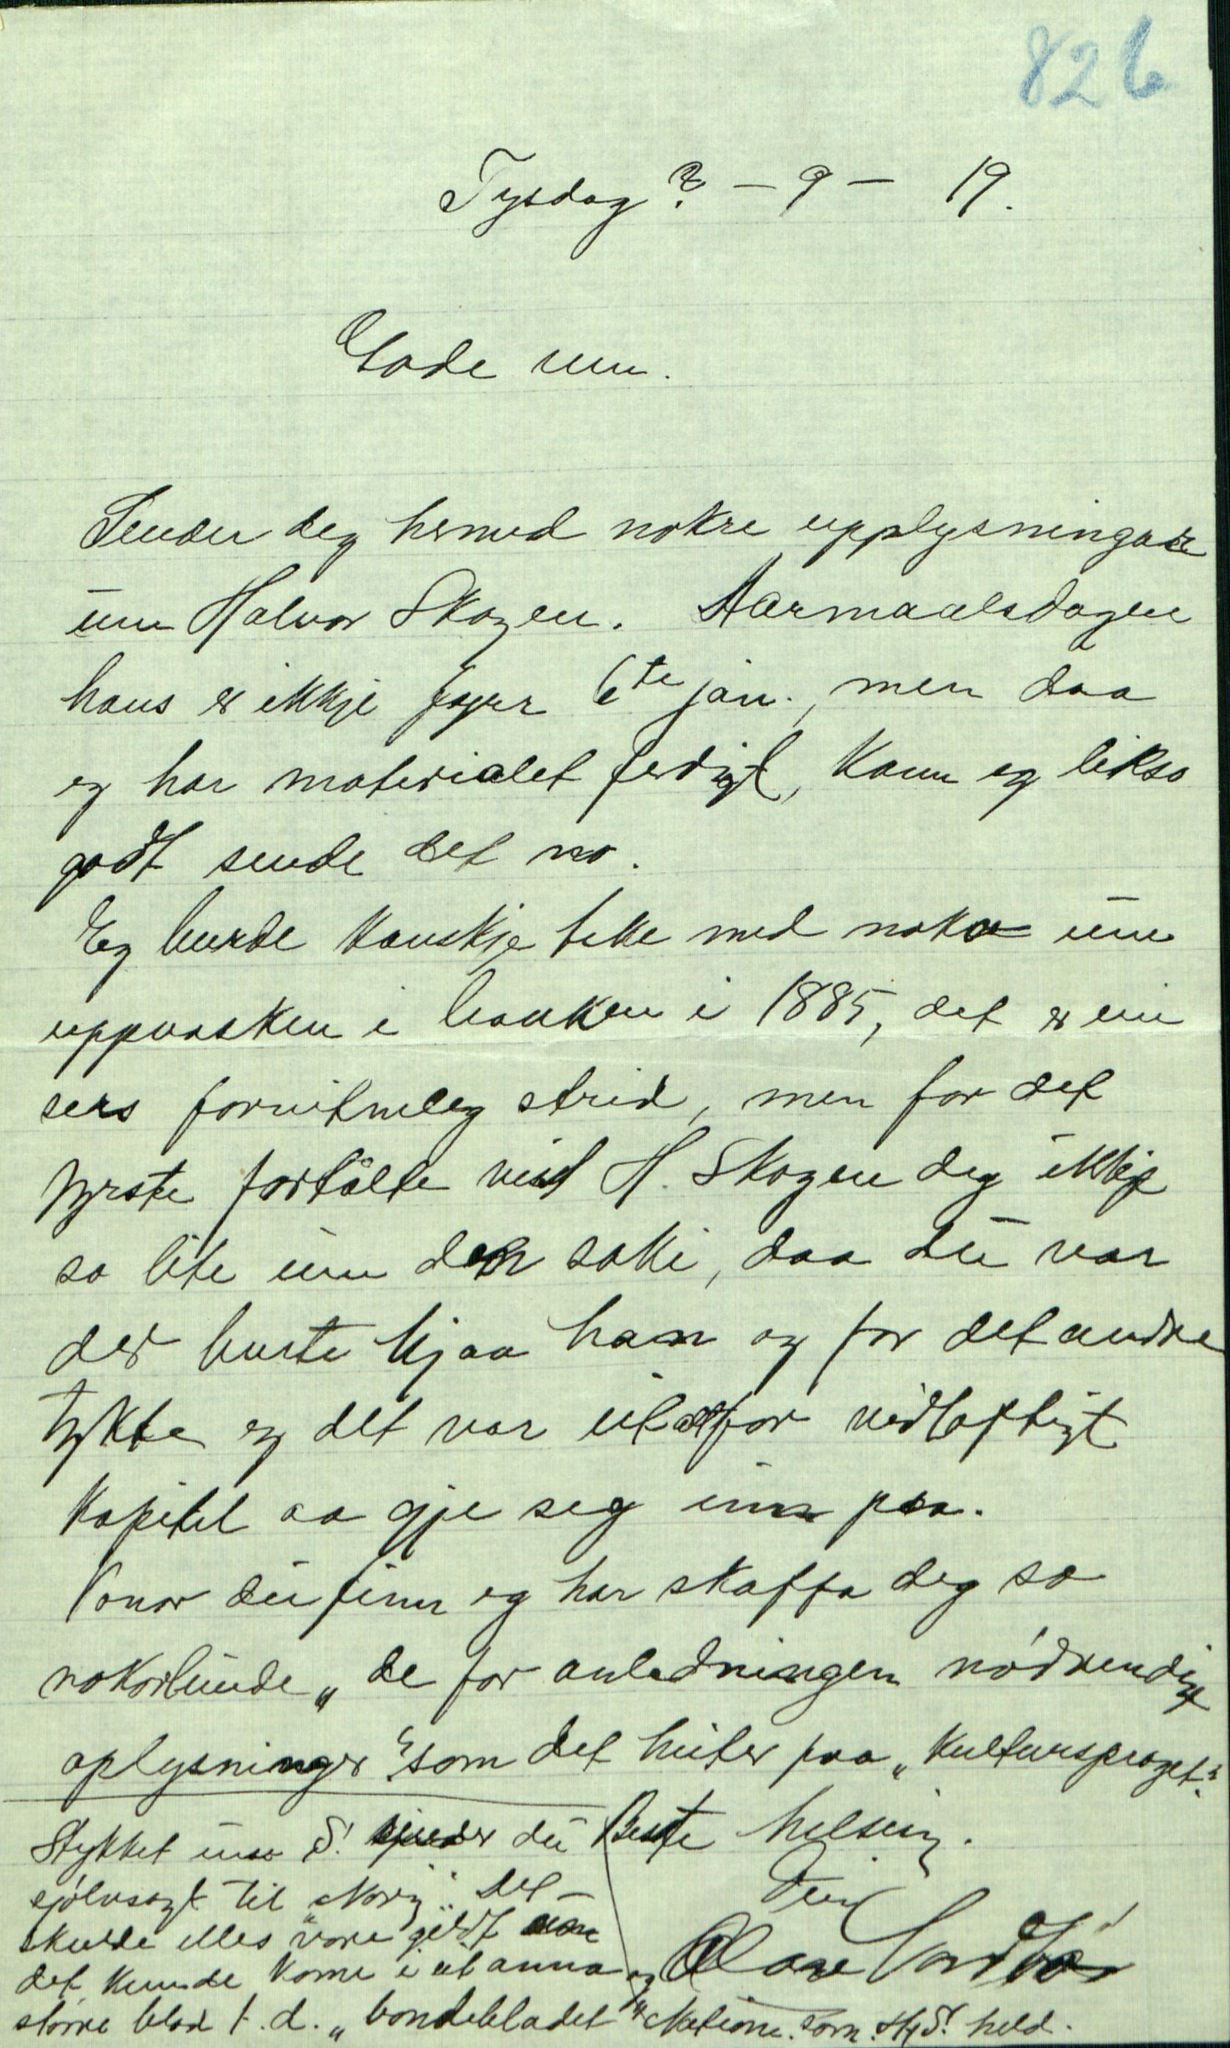 826
Tysdag ? – 9 – 19.
Gode ven.
Sender deg hermed nokre upplysningar
um Halvor Skogen. Aarmaalsdagen
hans er ikkje fyrr 6te jan., men daa
eg har materialet ferdigt, kann eg likso
godt sende det no.
Eg burde kanskje teke med noko um
uppvasken i banken i 1885, det er ein
sers forvitneleg strid, men for det
fyrste fortalte visst H. Skogen deg ikkje
so lite um den saki, daa du var
der burte hjaa han og for det andre
tykte eg det var eit altfor vidløftigt
kapitel aa gje seg inn paa.
Vonar du finn eg har skaffa deg so
nokorlunde „de for anledningen nødvendige
oplysninger“ som det heiter paa „kultursproget“.
Beste helsing.
Din
Olav Sordbø
Stykket um S. sender du
sjølvsagt til „Norig“. Det
skulde elles vore gildt um
det kunde kome i eit anna
større blad t. d. „bondebladet“ og „Nationen“ som H. S. held.